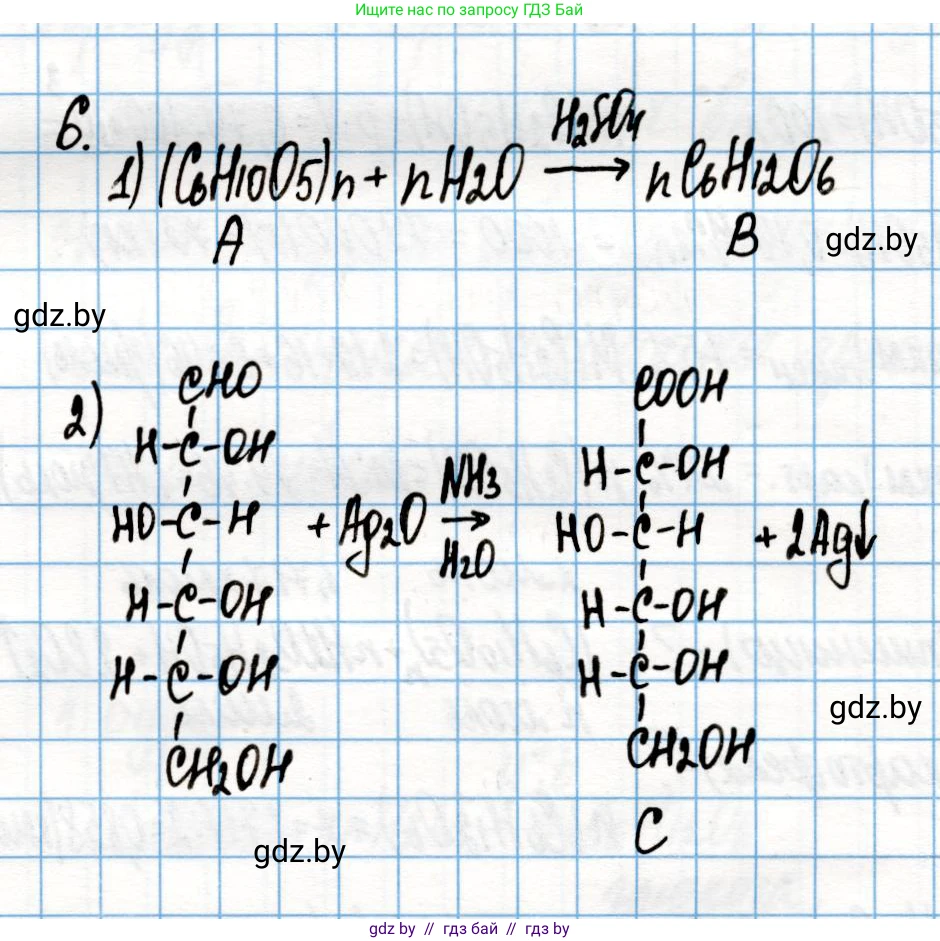 Ищите нас по запросу ГДЗ Бай
6.
1) (C6H10O5)n + nH2O H2SO4 → nC6H12O6
A B
gdz.by
gdz.by
2) CHO
H-C-OH
HO-C-H
H-C-OH
H-C-OH
CH2OH
+ Ag2O NH3 → H2O
COOH
H-C-OH
HO-C-H
H-C-OH
H-C-OH
CH2OH
C
+ 2Ag↓
gdz.by
gdz.by
gdz by // гдз бай // gdz.by